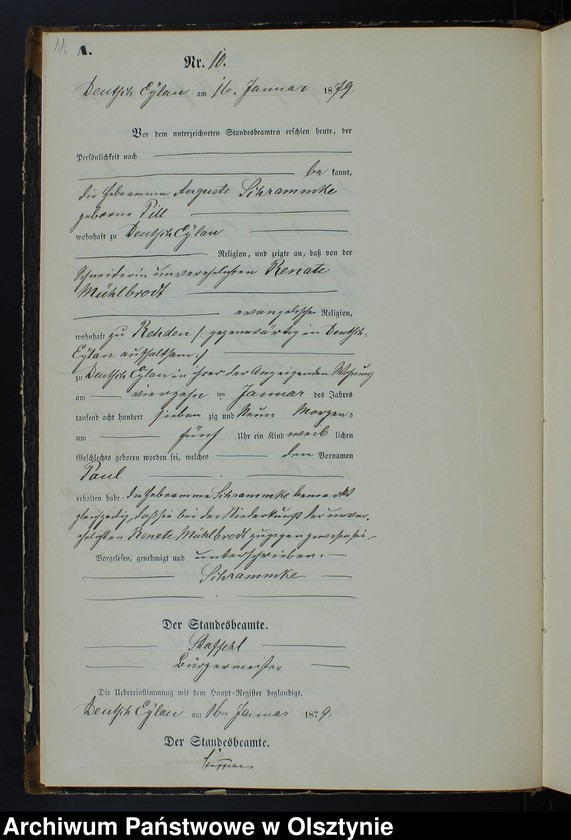 11 A.
Nr. 10.
Deutsch Eylau am 16. Januar 1879.
Vor dem unterzeichneten Standesbeamten erschien heute, der
Persönlichkeit nach
be kannt,
die Hebeamme Auguste Schrammke
geborne Till
wohnhaft zu Deutsch Eylau
Religion, und zeigte an, daß von der
Schneiderin unverehelichten Renate
Mühlbrodt
evangelischer Religion,
wohnhaft zu Rehden /: gegenwärtig in Deutsch-
Eylau aufhaltsam :/
zu Deutsch Eylau in ihrer der Anzeigenden Wohnung
am vierzehn ten Januar des Jahres
tausend acht hundert sieben zig und Neun Morgens
um fünf Uhr ein Kind weib lichen
Geschlechts geboren worden sei, welches den Vornamen
Paul
erhalten habe. die Hebeamme Schrammke bemerkt
gleichzeitig, daß sie bei der Niederkunft der unver-
ehelichten Renate Mühlbrodt zugegen gewesen sei.
Vorgelesen, genehmigt und unterschrieben.
Schrammke
Der Standesbeamte.
Bürgermeister
Die Uebereinstimmung mit dem Haupt-Register beglaubigt.
Deutsch Eylau am 16ten Januar 1879.
Der Standesbeamte.
Archiwum Państwowe w Olsztynie